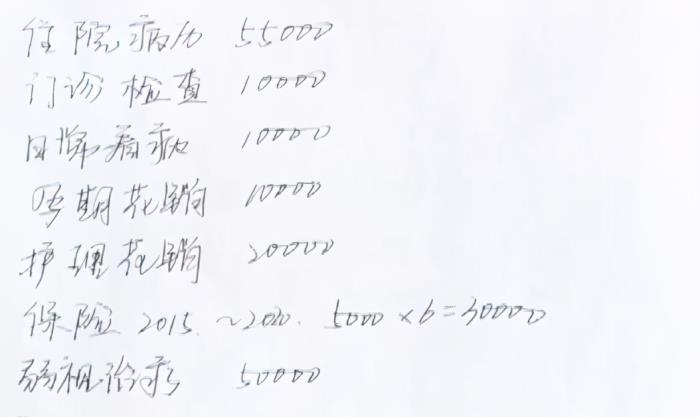 住院病历 55000
门诊检查 10000
日常看病 10000
孕期花销 10000
护理花销 20000
保险 2015.~2020. 5000×6=30000
弱视治疗 50000